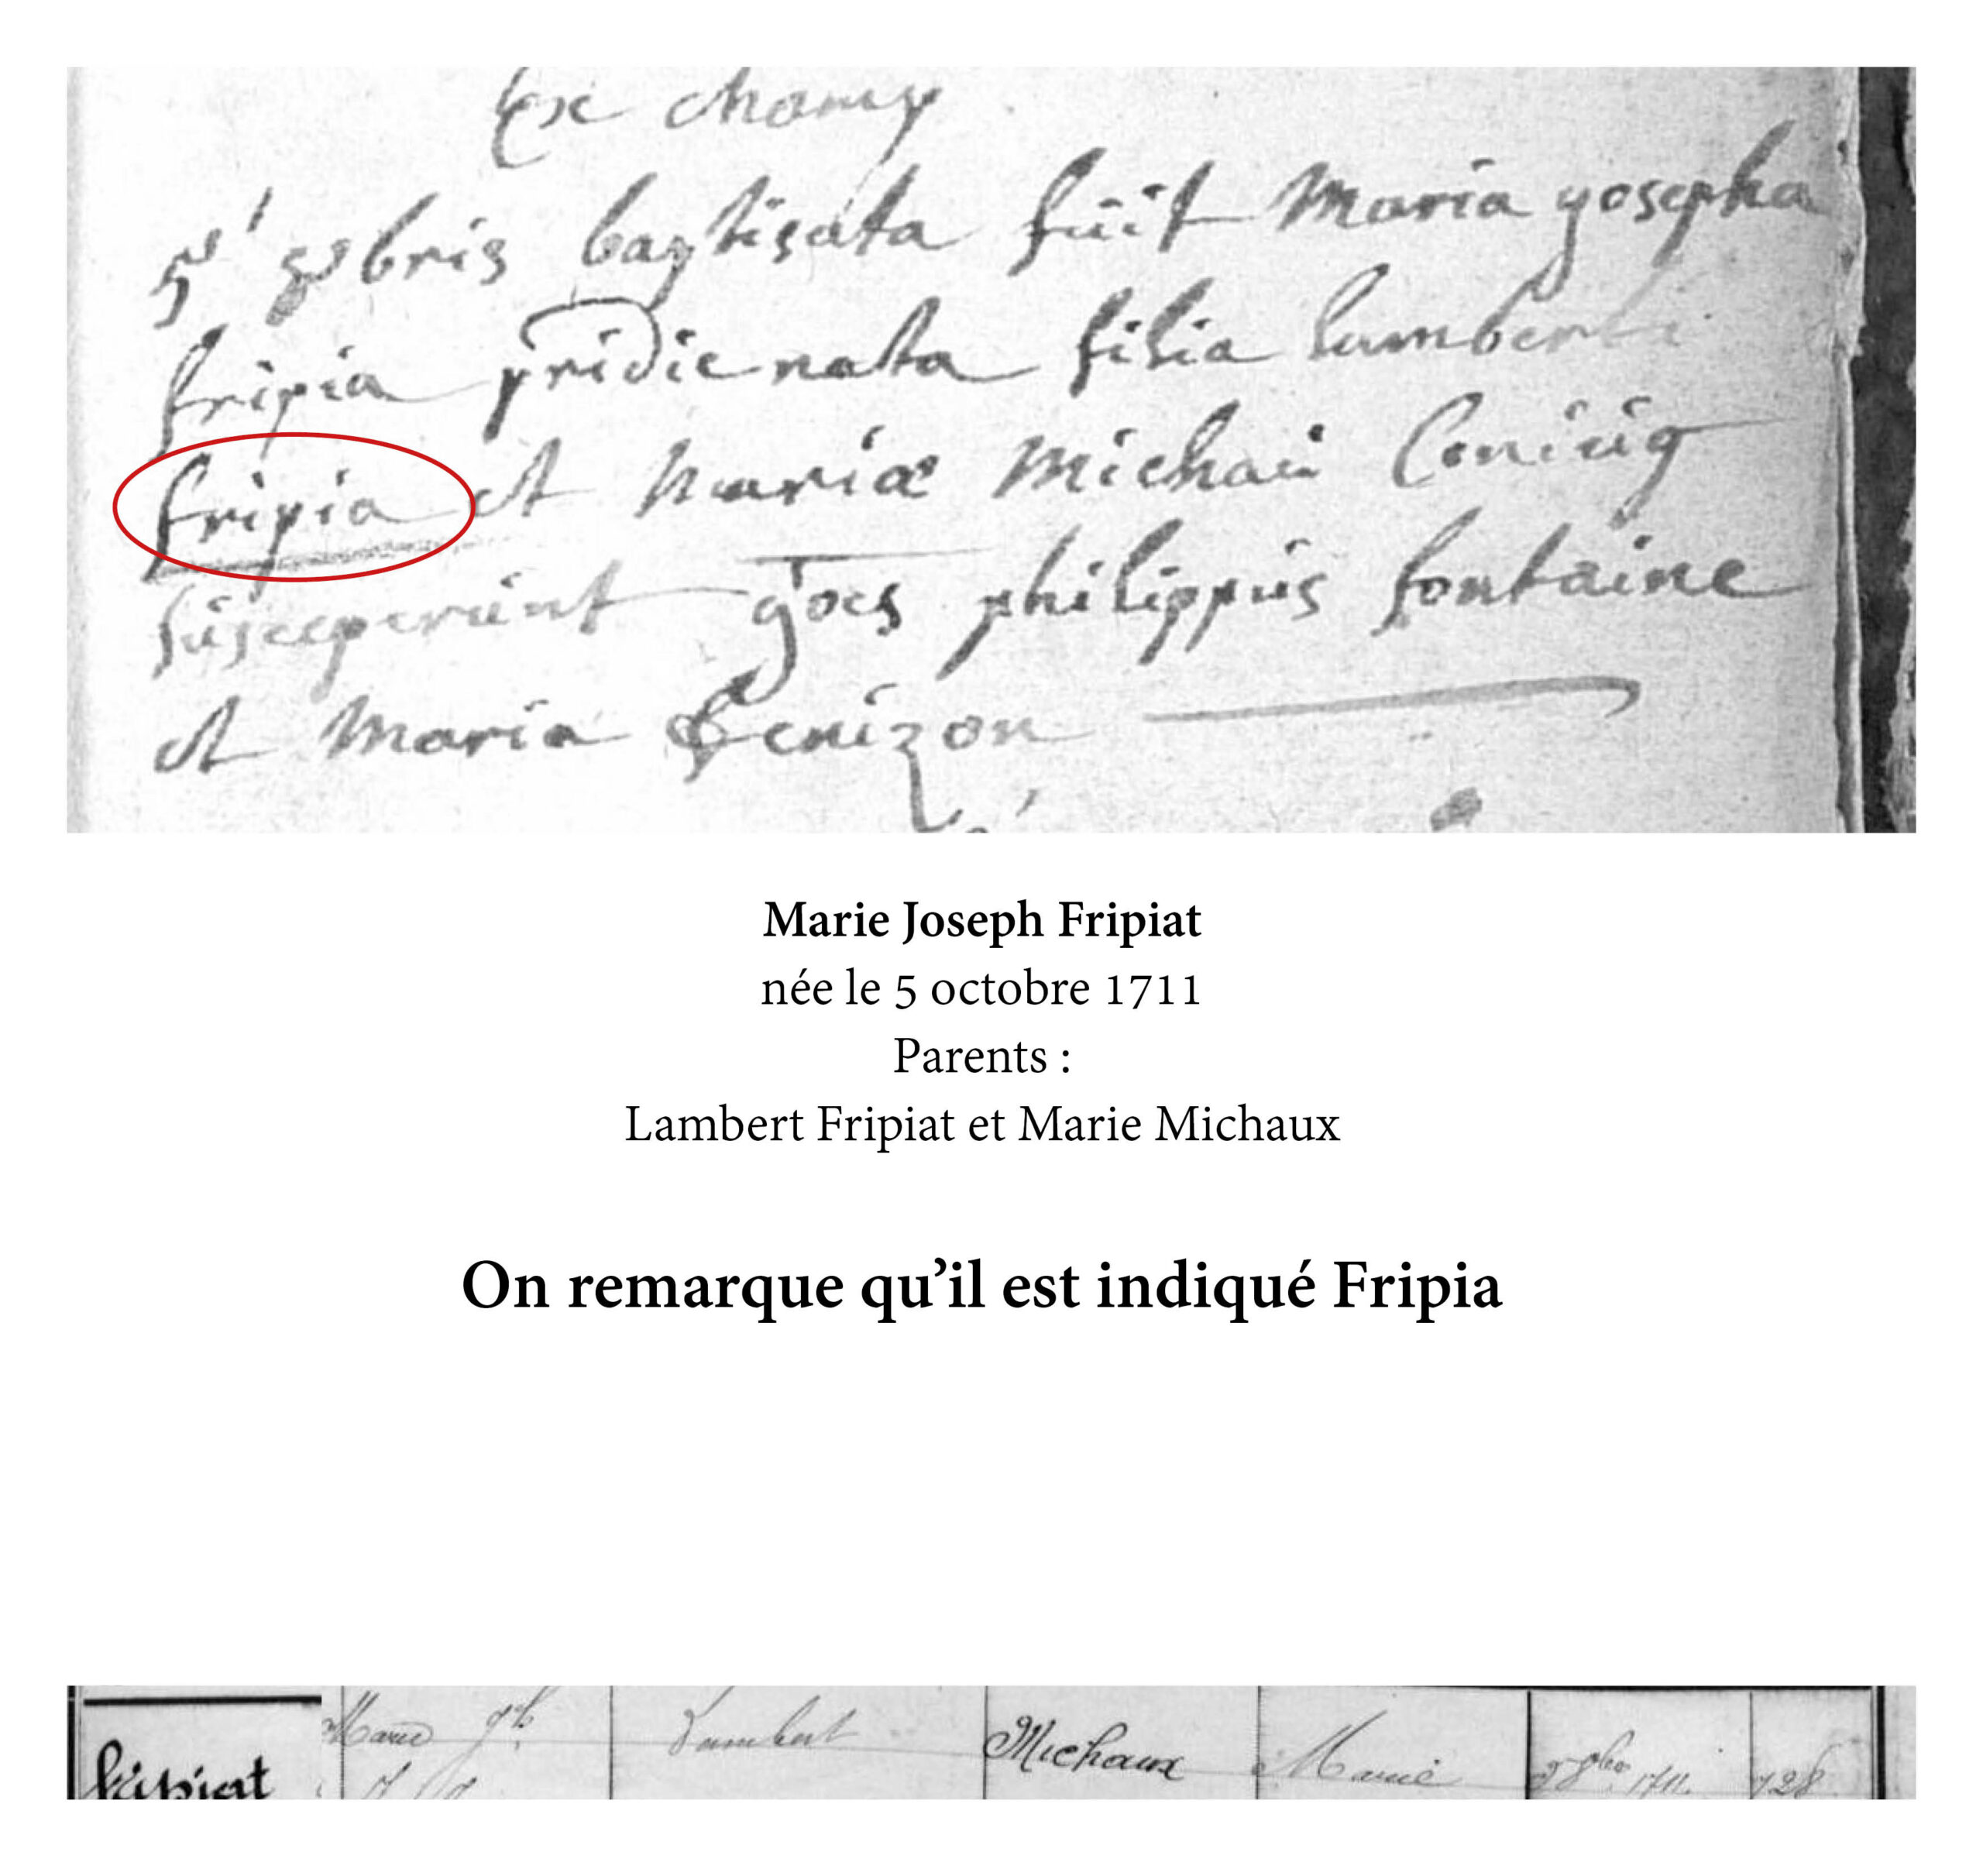 Ex
5' 8bris baptisata fuit Maria yosepha
fripia pridie nata filia lamberti
fripia et Mariæ Michaú Coniúg
súsceperúnt philippús fontaine
et Maria
Marie Joseph Fripiat
née le 5 octobre 1711
Parents :
Lambert Fripiat et Marie Michaux
On remarque qu’il est indiqué Fripia
fripiat Marie Jph Lambert Michaux Marie 8bre 1711. 728